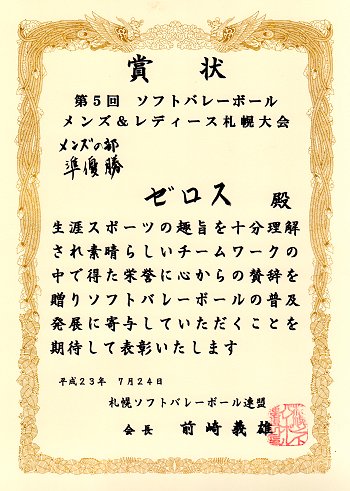 賞状
第5回 ソフトバレーボール
メンズ＆レディース札幌大会
メンズの部
準優勝
ゼロス 殿
生涯スポーツの趣旨を十分理解
され素晴らしいチームワークの
中で得た栄誉に心からの賛辞を
贈りソフトバレーボールの普及
発展に寄与していただくことを
期待して表彰いたします
平成23年 7月24日
札幌ソフトバレーボール連盟
会長 前崎義雄